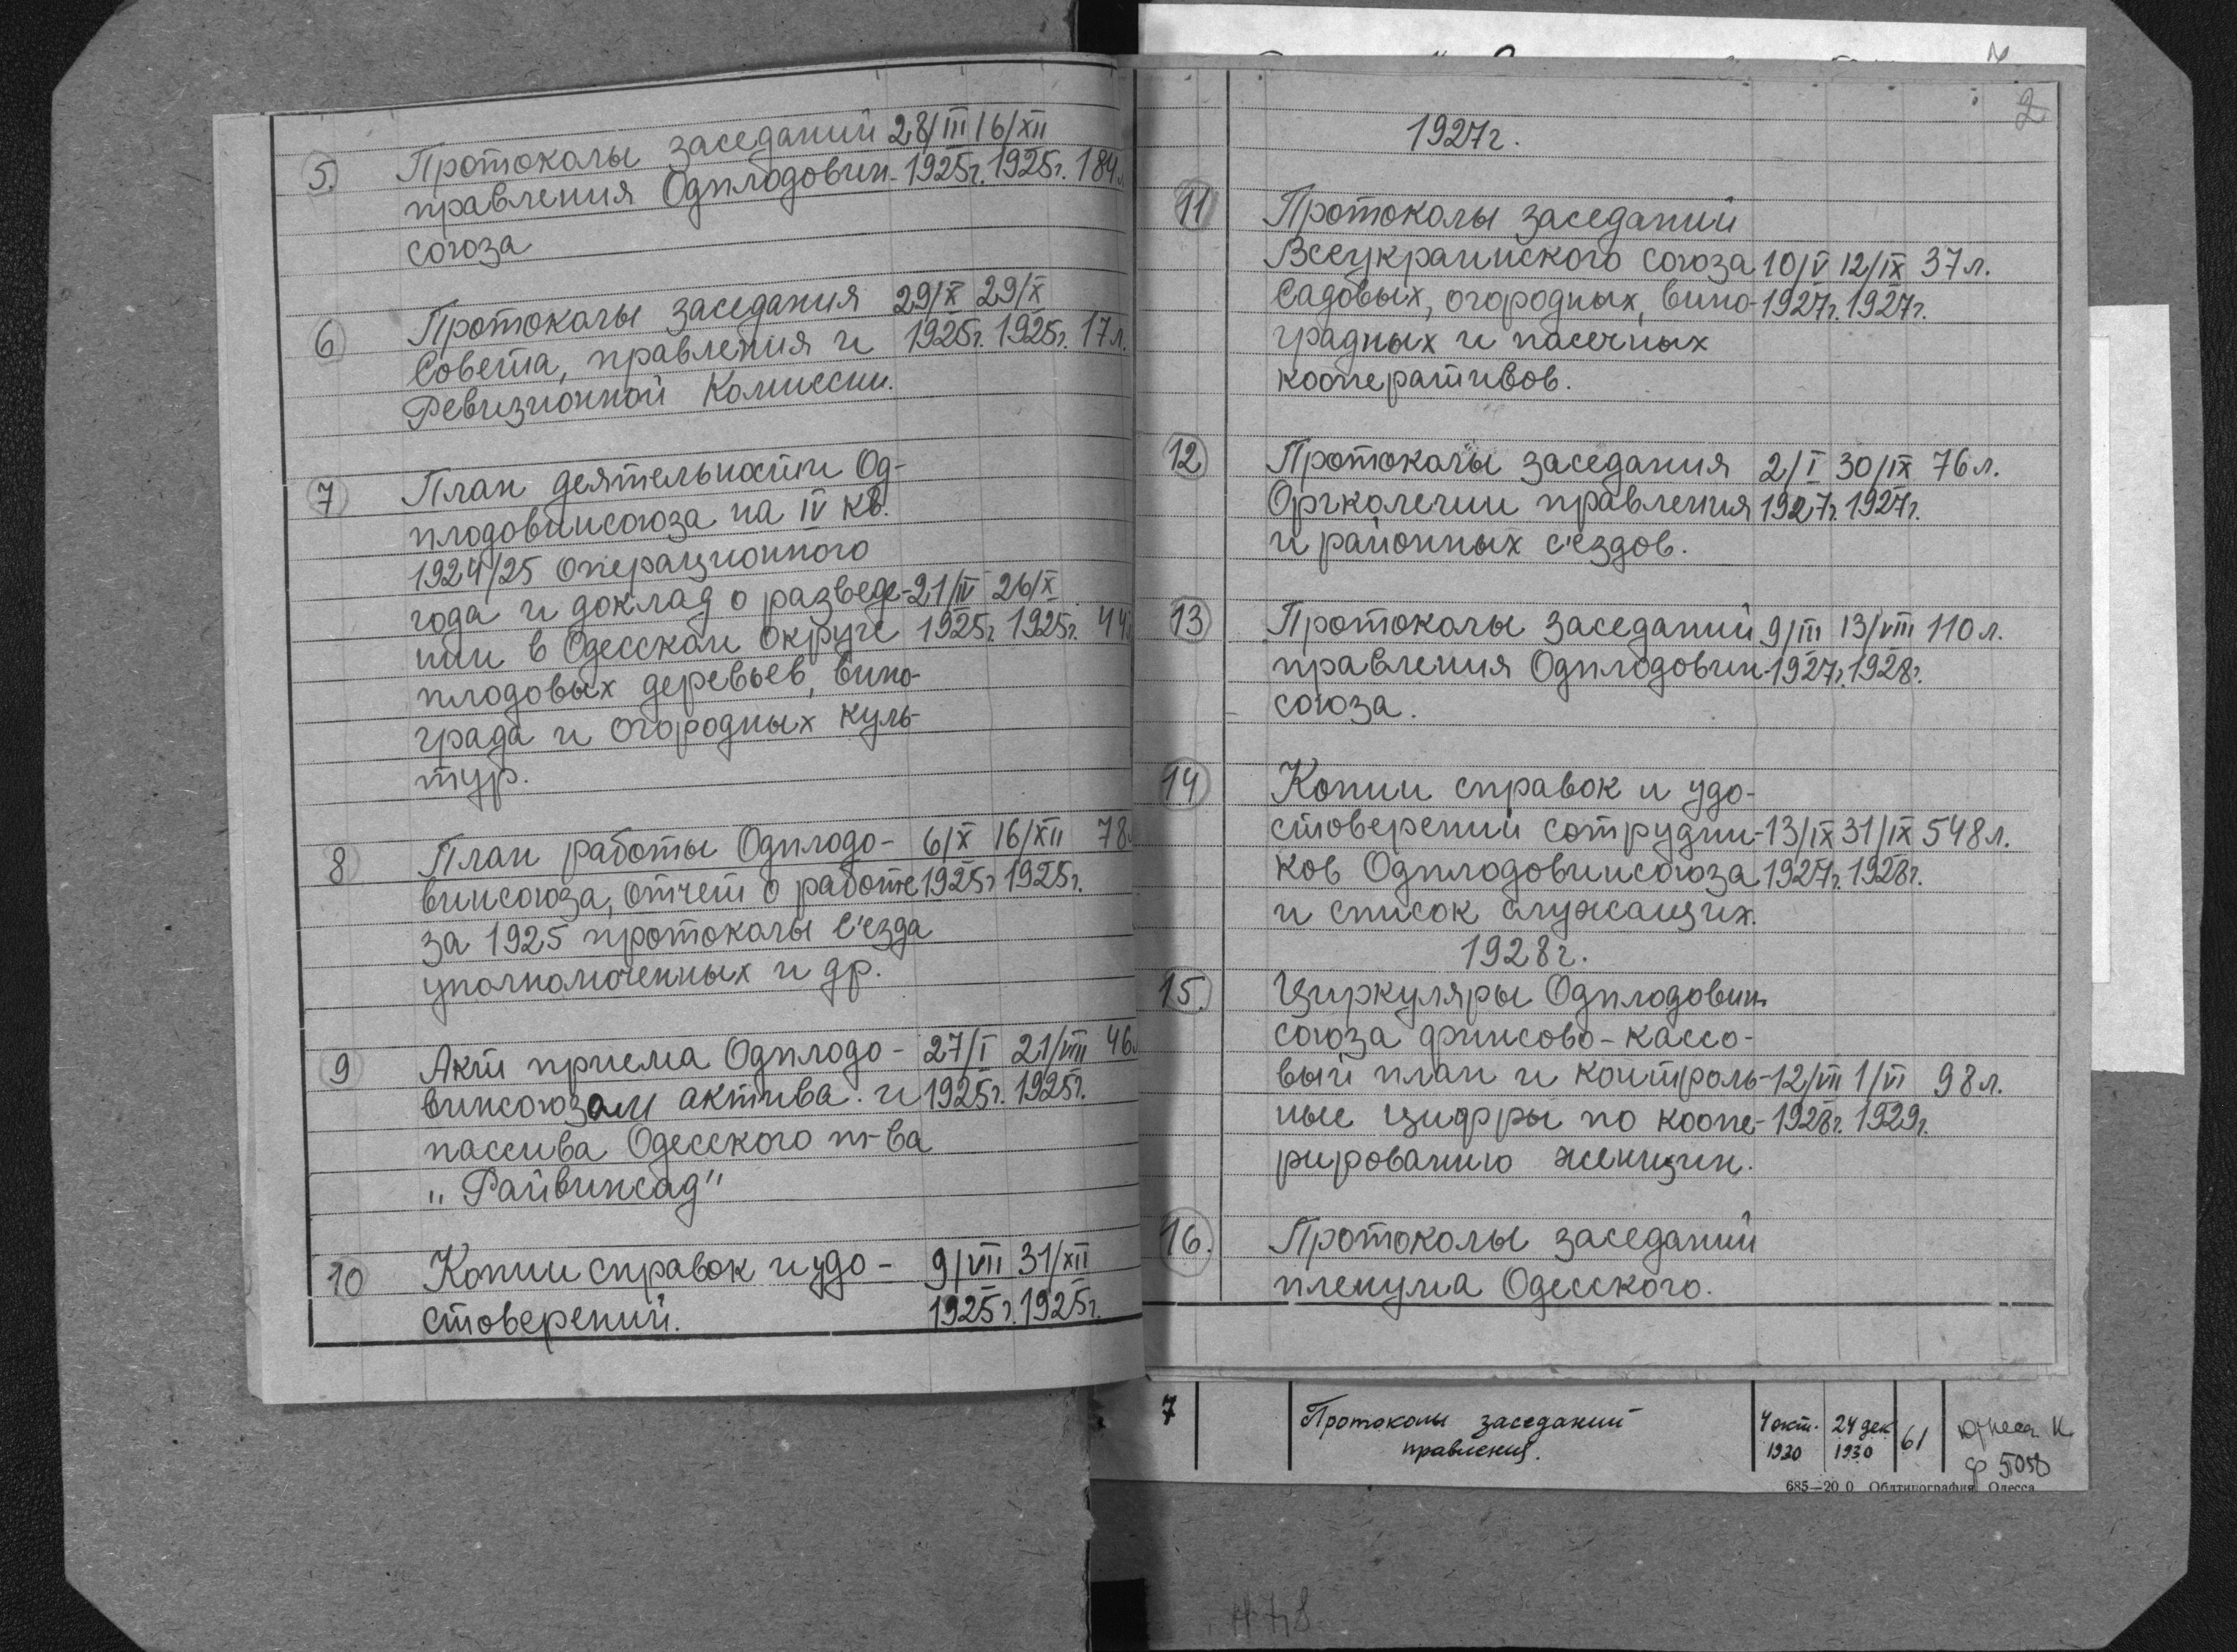 5. Протоколы заседаний 28/III 16/XII
правления Одплодовин- 1925г. 1925г. 184л
союза
6 Протоколы заседания 29/X 29/X
Совета, правления и 1925г. 1925г. 17л.
Ревизионной Комиссии.
7 План деятельности Од-
плодовинсоюза на IV кв.
1924/25 операционного
года и доклад о разведе- 21/IV 26/X
нии в Одесском округе 1925г. 1925г. 44
плодовых деревьев, вино-
града и огородных куль-
тур.
8 План работы Одплодо- 6/X 16/XII 78
винсоюза, отчет о работе 1925г 1925г.
за 1925 протоколы с'езда
уполномоченных и др.
9 Акт приема Одплодо- 27/I 21/VIII 46
винсоюзом актива. и 1925г. 1925г.
пассива Одесского т-ва
"Райвинсад"
10 Копии справок и удо- 9/VII 31/XII
стоверений. 1925г. 1925г.
2
1927г.
11 Протоколы заседаний
Всеукраинского союза 10/V 12/IX 37л.
Садовых, огородных, вино- 1927г. 1927г.
градных и пасечных
кооперативов.
12 Протоколы заседания 2/I 30/IX 76л.
Оргколегии правления 1927г. 1927г.
и районных с'ездов.
13 Протоколы заседаний 9/III 13/VIII 110л.
правления Одплодовин- 1927г. 1928г.
союза.
14 Копии справок и удо-
стоверений сотрудни- 13/IX 31/IX 548л.
ков Одплодовинсоюза 1927г. 1928г.
и список служащих.
1928г.
15. Циркуляры Одплодовин-
союза финсово-кассо-
вый план и контроль- 12/VII 1/VI 98л.
ные цифры по коопе- 1928г. 1929г.
рированию женщин.
16. Протоколы заседаний
пленума Одесского.
7 Протоколы заседаний 4 окт. 24 дек 61
правления. 1930 1930
ф 5058
685—20 0 Облтипография Одесса